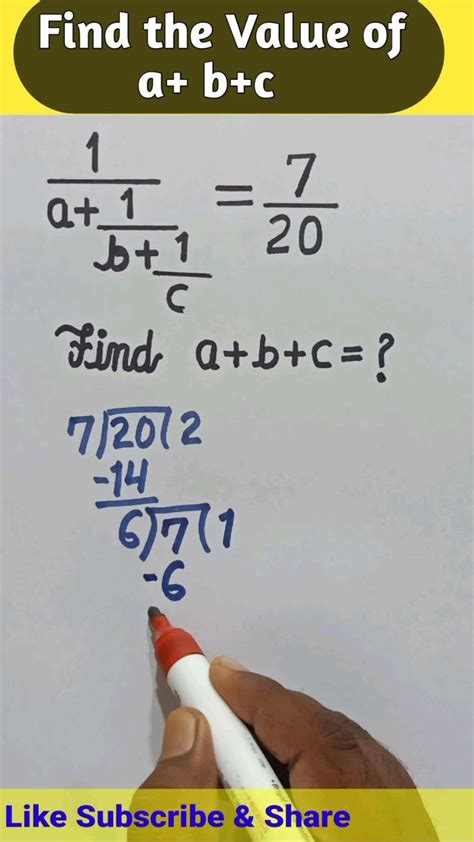 Find the Value of
a+ b+c
1
a+ 1 = 7
b+ 1 20
c
Find a+b+c=?
7)20(2
-14
6)7(1
-6
Like Subscribe & Share